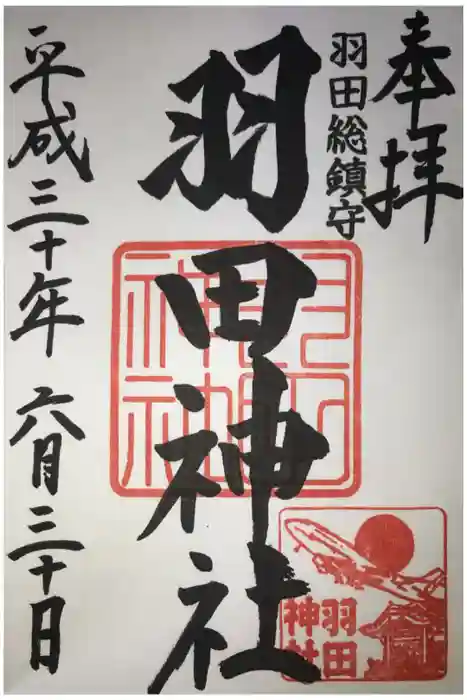 奉拝
羽田総鎮守
羽田神社
平成三十年 六月三十日
羽田
神社